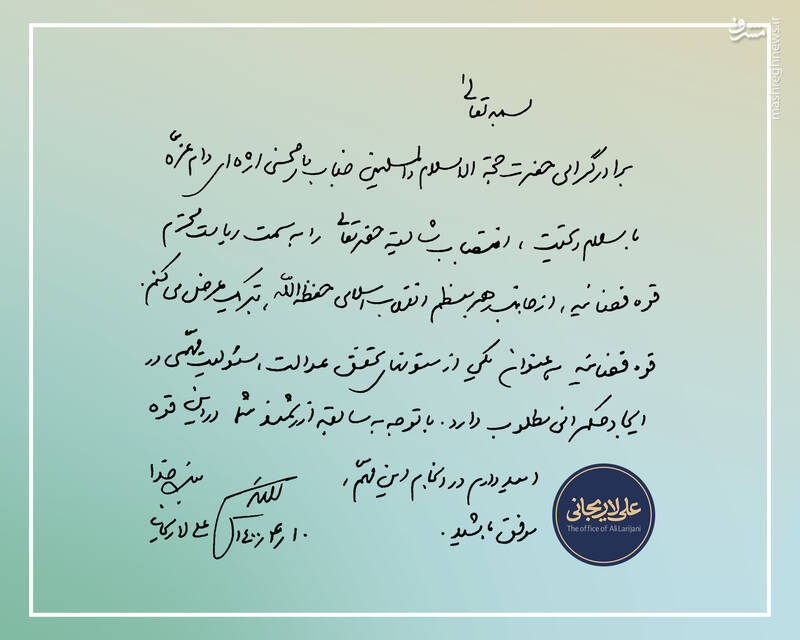 بسمه تعالی
برادر گرامی حضرت حجة الاسلام والمسلمین جناب آقای محسنی اژه ای دام عزّه
با سلام و تحیت، انتصاب شایسته حضرتعالی را به سمت ریاست محترم
قوه قضائیه، از جانب رهبر معظم انقلاب اسلامی حفظه الله، تبریک عرض می کنم.
قوه قضائیه به عنوان یکی از ستونهای تحقق عدالت، مسئولیت مهمّی در
ایجاد حکمرانی مطلوب دارد. با توجه به سابقه ارزشمند شما در این قوه
امیدوارم در انجام این مهّم،
موفق باشید.
علی لاریجانی
۱۴۰۰/۴/۱۰
علی لاریجانی
The office of Ali Larijani
مشرق
mashreghnews.ir